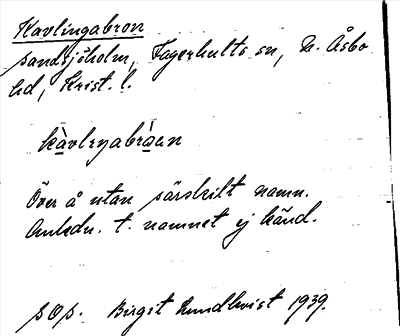 Kavlingabron
Sandsjöholm, Fagerhults sn, N. Åsbo
hd, Krist. l.
kàvlɩŋabråən
Över å utan särskilt namn.
Anledn. t. namnet ej känd.
Birgit Lundkvist 1939.